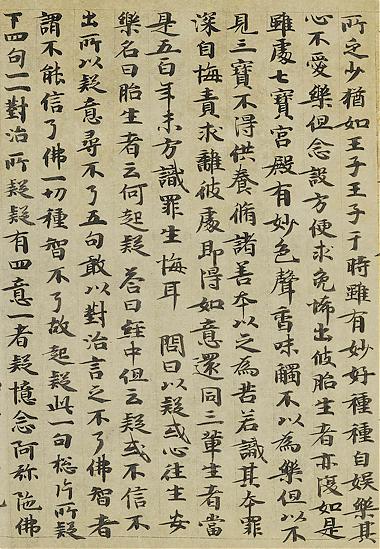 所乏少猶如王子王子于時雖有妙好種種自娛樂具
心不愛樂但念設方便求免怖出彼胎生者亦復如是
雖處七寶宮殿有妙色聲香味觸不以為樂但以不
見三寶不得供養脩諸善本以之為苦若識其本罪
深自悔責求離彼處即得如意還同三輩生者當
是五百年末方識罪生悔耳 問曰以疑或心往生安
樂名曰胎生者云何起疑 荅曰經中但云疑或不信不
出所以疑意尋不了五句敢以對治言之不了佛智者
謂不能信了佛一切種智不了故起疑此一句総弁所疑
下四句一一對治所疑疑有四意一者疑憶念阿弥陁佛